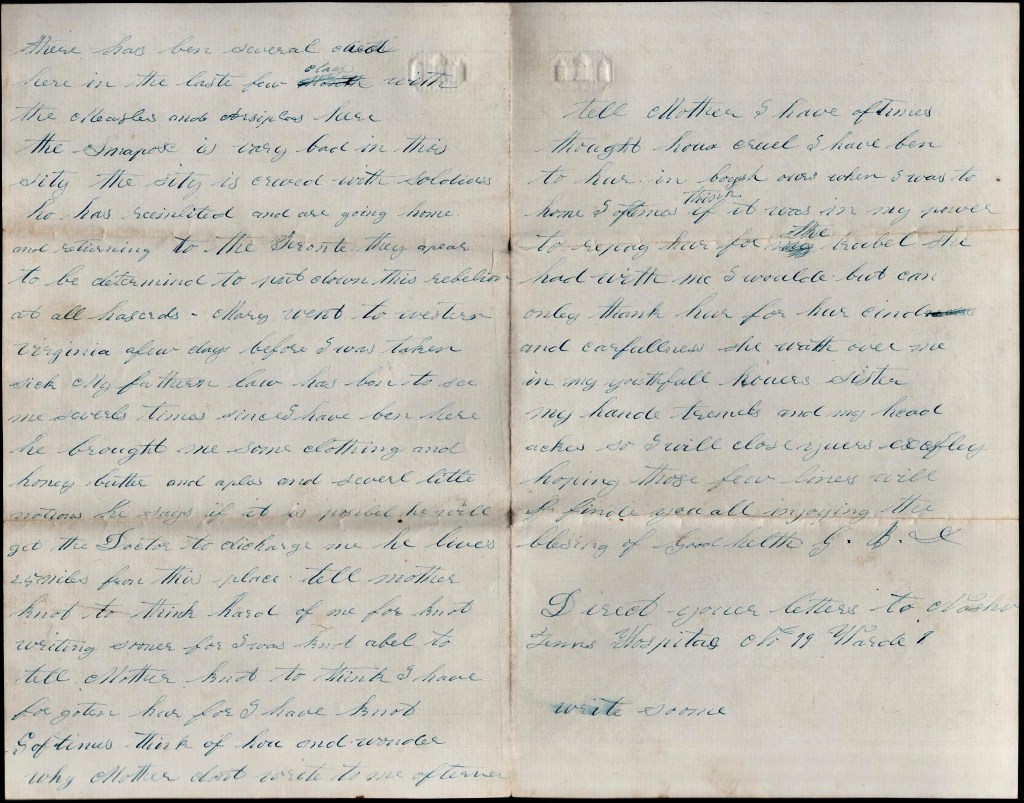 there has ben several died
here in the last few days with
the Measles and Arsiplas here
the Smapox is vary bad in this
sity the sity is crowed with soldiers
ho has reeinlited and are going home
and returning to the Fronte they apear
to be determind to put down this rebelion
at all haserds - Mary went to western
virginia afew days before I was taken
sick My fatherin law has ben to see
me severls times since I have ben here
he brought me some clothing and
honey butter and apless and severl little
notions he says if it is posibel he will
get the Doctor to discharge me he lives
25 miles from this place tell mother
knot to think hard of me for knot
writing sooner for I was knot abel to
tell Mother knot to think I have
forgoten hur for I have knot
I oftimes think of hur and wonder
why Mother dont write to me oftener
tell Mother I have oftimes
thought how cruel I have ben
to hur in boysh ours when I was to
home I oftimes think if it was in my power
to repay hur for the trubel she
had with me I woulde but can
only thank hur for hur kind
and carfullness she over me
in my youthfull houers Sister
my hande tremels and my head
akes so I will close yuers
hoping those few lines will
finde you all injoying the
blesing of Good helth G. B.
Direct youer letters to Nashv
Tenns Hospital No 19 Warde 1
write soone